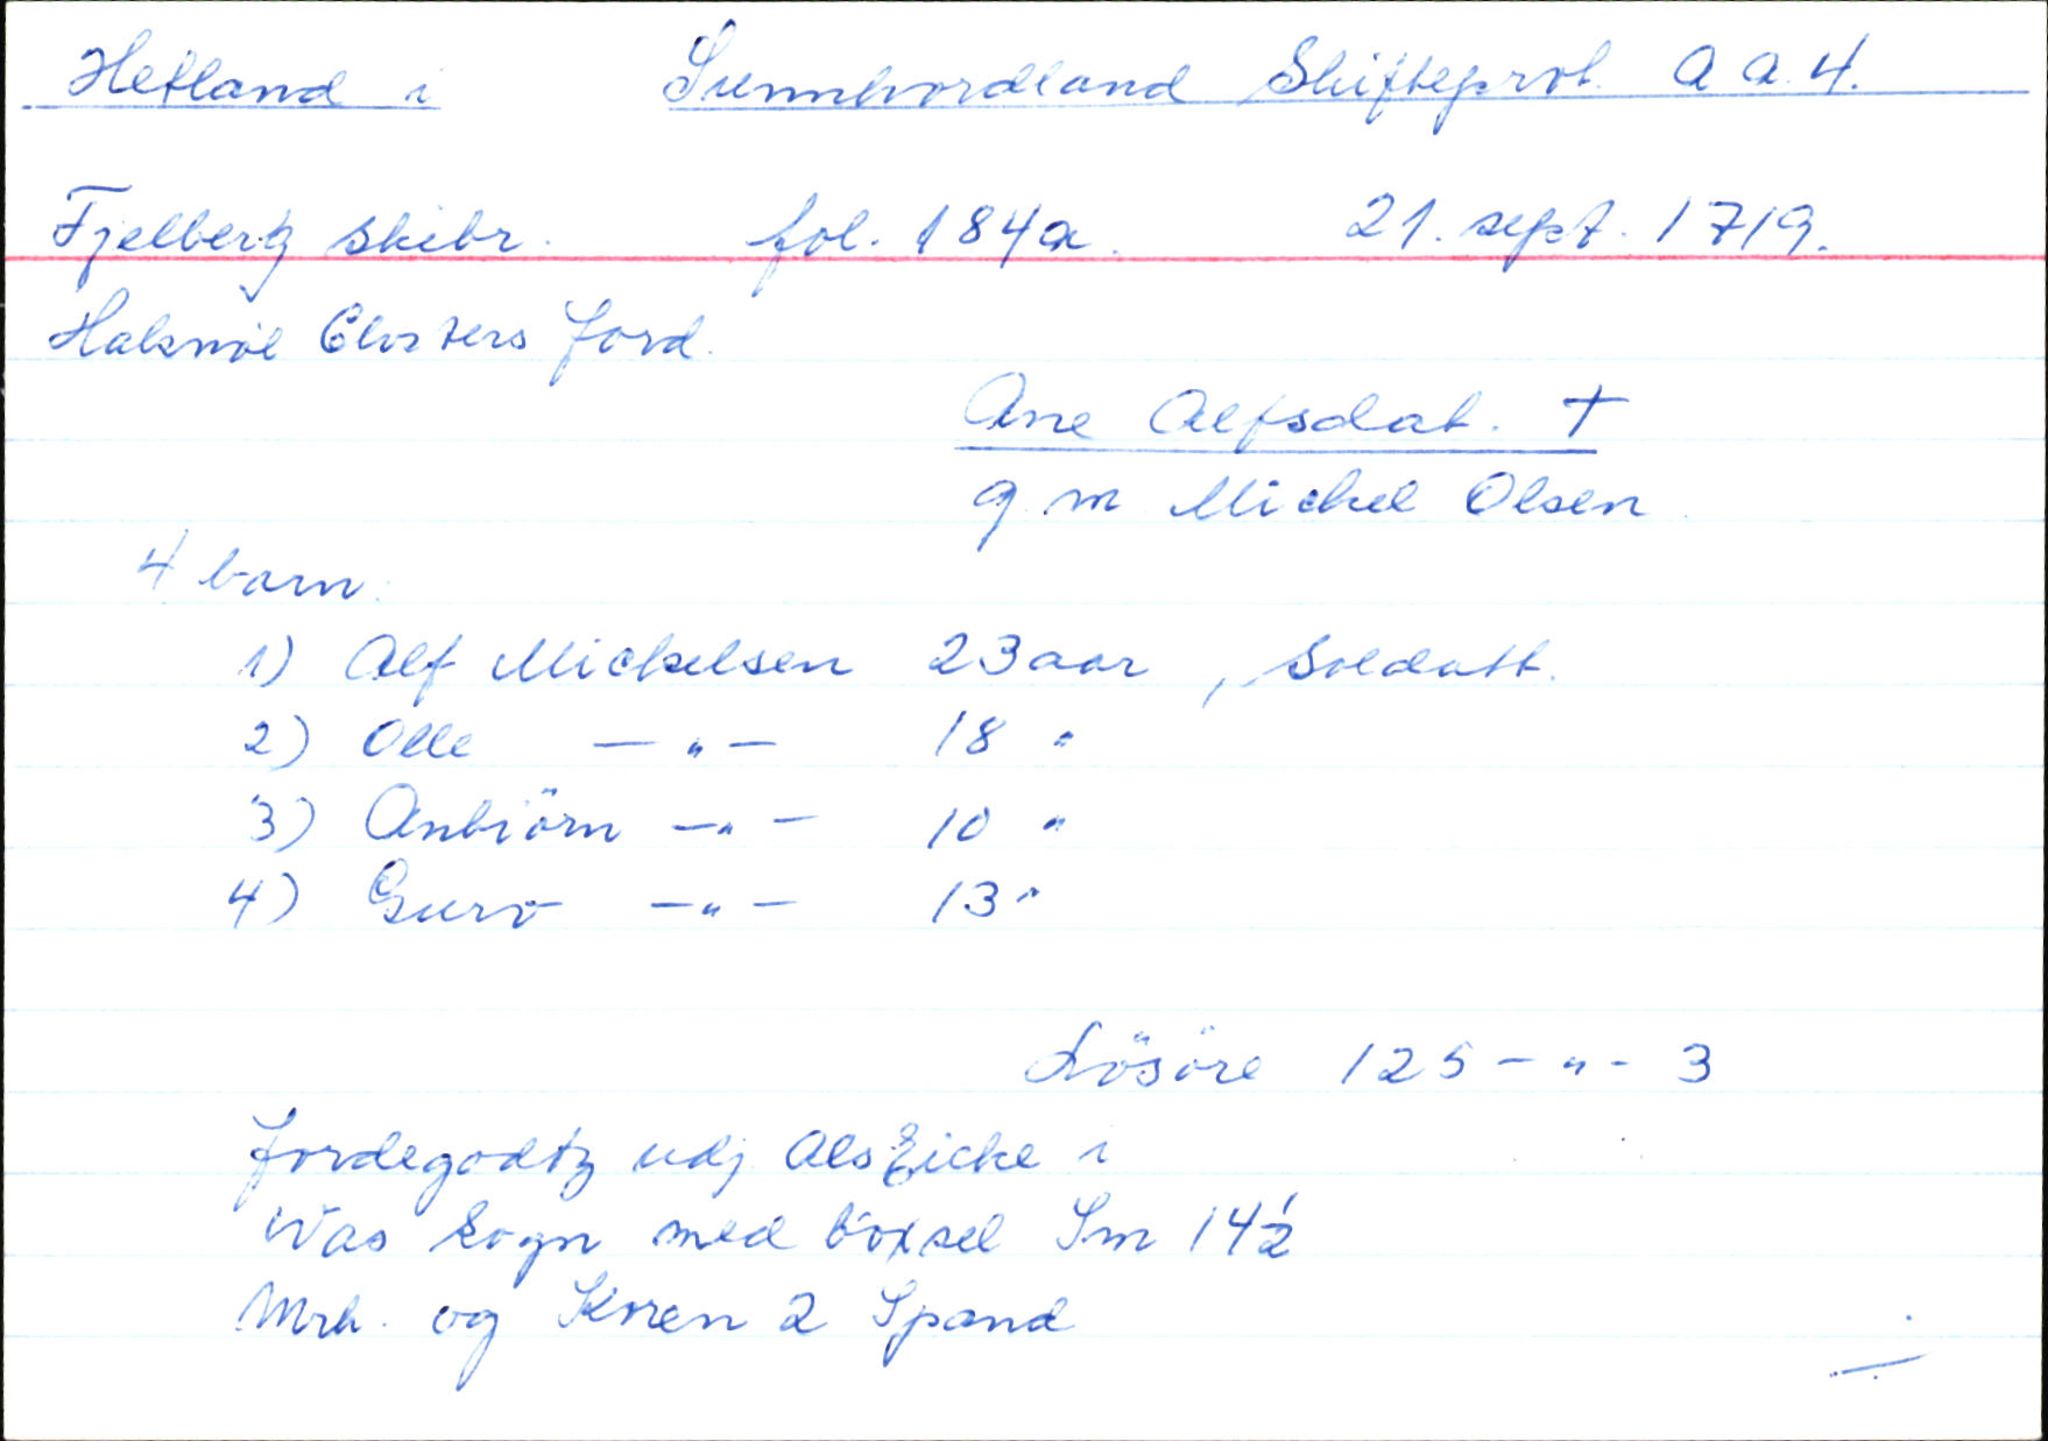 Hetland i Sunnhordland Skifteprot. A a 4.
Fjelberg skibr. fol. 184a. 21. sept. 1719.
Halsnøe Closters Jord.
Ane Alfsdat. †
g. m Michel Olsen
4 barn:
1) Alf Michelsen 23 aar, Soldatt.
2) Olle —"— 18 "
3) Anbiörn —"— 10 "
4) Guro —"— 13 "
Lösöre 125 - " - 3
Jordegodtz udj AlsEicke i
Was Sogn med böxsel Sm 14½
Mrk. og Koren 2 Spand